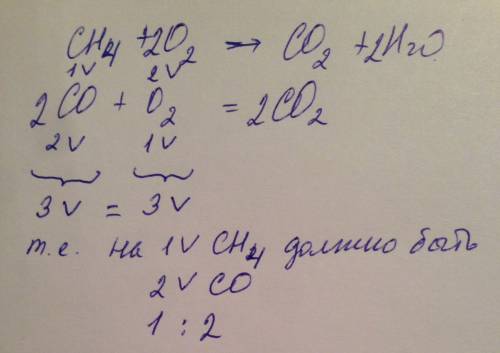 CH4 + 2O2 → CO2 + 2H2O
1V 2V
2CO + O2 = 2CO2
2V 1V
3V = 3V
т.е. на 1V CH4 должно быть
2V CO
1 : 2